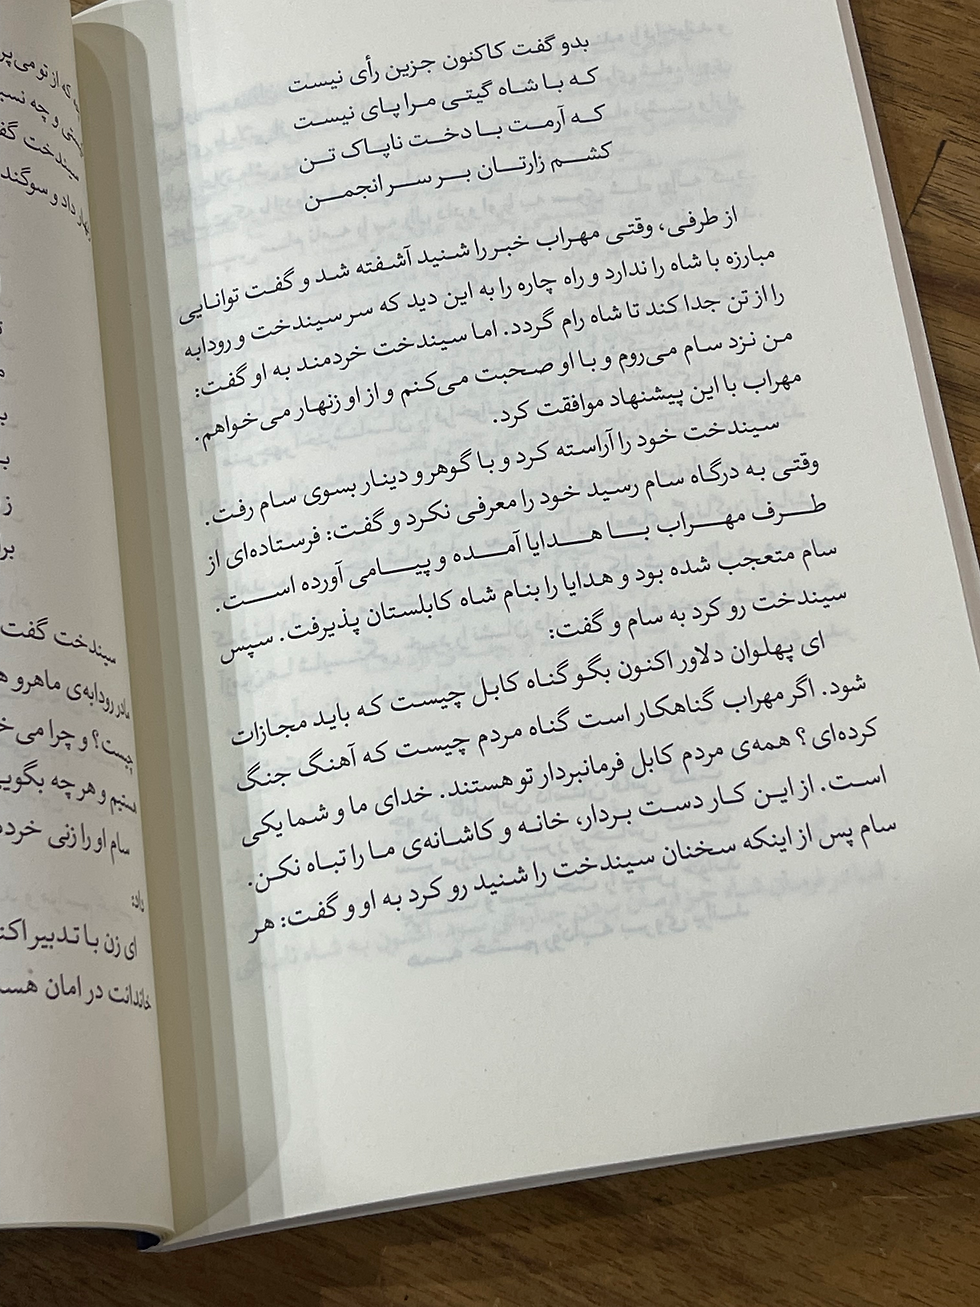 بدو گفت کاکنون جزین رأی نیست
که با شاه گیتی مرا پای نیست
که آرمت با دخت ناپاک تن
کشم زارتان بر سر انجمن
از طرفی، وقتی مهراب خبر را شنید آشفته شد و گفت توانایی
مبارزه با شاه را ندارد و راه چاره را به این دید که سر سیندخت و رودابه
را از تن جدا کند تا شاه رام گردد. اما سیندخت خردمند به او گفت:
من نزد سام می‌روم و با او صحبت می‌کنم و از او زنهار می‌خواهم.
مهراب با این پیشنهاد موافقت کرد.
سیندخت خود را آراسته کرد و با گوهر و دینار بسوی سام رفت.
وقتی به درگاه سام رسید خود را معرفی نکرد و گفت: فرستاده‌ای از
طرف مهراب با هدایا آمده و پیامی آورده است.
سام متعجب شده بود و هدایا را بنام شاه کابلستان پذیرفت. سپس
سیندخت رو کرد به سام و گفت:
ای پهلوان دلاور اکنون بگو گناه کابل چیست که باید مجازات
شود. اگر مهراب گناهکار است گناه مردم چیست که آهنگ جنگ
کرده‌ای؟ همه‌ی مردم کابل فرمانبردار تو هستند. خدای ما و شما یکی
است. از این کار دست بردار، خانه و کاشانه‌ی ما را تباه نکن.
سام پس از اینکه سخنان سیندخت را شنید رو کرد به او و گفت: هر
که از تو می‌پر
و چه نسب
سیندخت گف
داد و سوگند
سیندخت گفت
مادر رودابه‌ی ماهرو ه
چیست؟ و چرا می‌خ
هستیم و هر چه بگویی
سام او را زنی خرد
داد:
ای زن با تدبیر اکن
خاندانت در امان هس